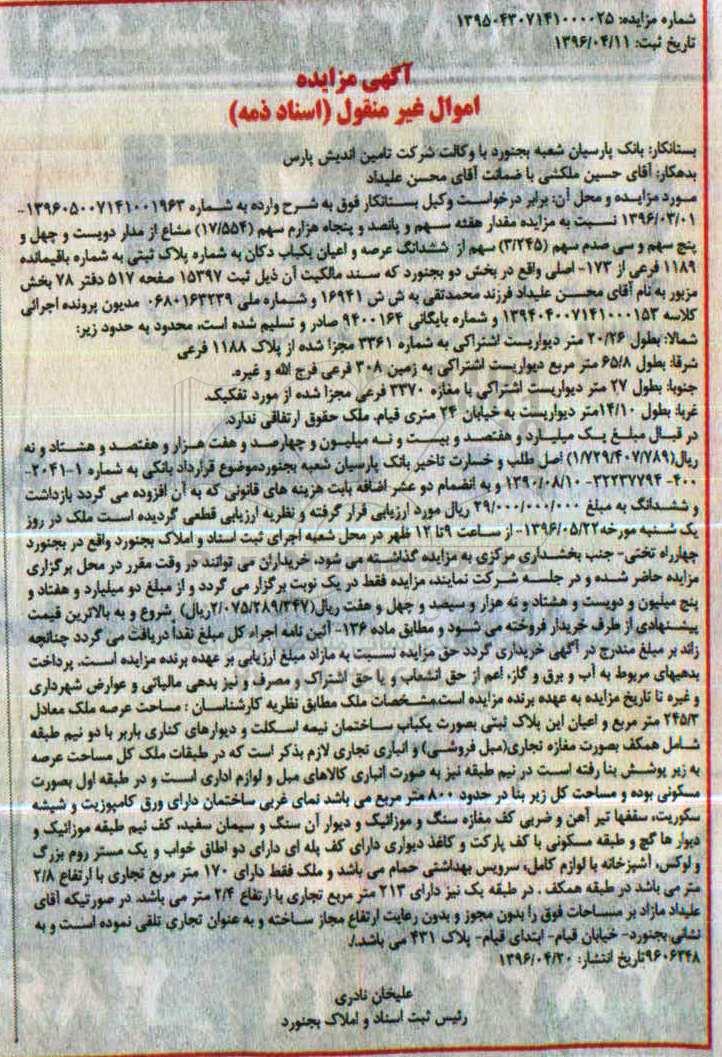 شماره مزایده: ۱۳۹۵۰۴۳۰۷۱۴۱۰۰۰۰۲۵
تاریخ ثبت: ۱۳۹۶/۰۴/۱۱
آگهی مزایده
اموال غیر منقول (اسناد ذمه)
بستانکار: بانک پارسیان شعبه بجنورد با وکالت شرکت تامین اندیش پارس
بدهکار: آقای حسین ملکشی با ضمانت آقای محسن علیداد
مورد مزایده و محل آن: برابر درخواست وکیل بستانکار فوق به شرح وارده به شماره ۱۳۹۶۰۵۰۰۷۱۴۱۰۰۱۹۶۳-
۱۳۹۶/۰۳/۰۱ نسبت به مزایده مقدار هفئه سهم و پانصد و پنجاه هزارم سهم (۱۷/۵۵۴) مشاع از مدار دویست و چهل و
پنج سهم و سی صدم سهم (۳/۲۴۵) سهم از ششدانگ عرصه و اعیان یکباب دکان به شماره پلاک ثبتی به شماره باقیمانده
۱۱۸۹ فرعی از ۱۷۳- اصلی واقع در بخش دو بجنورد که سند مالکیت آن ذیل ثبت ۱۵۳۹۷ صفحه ۵۱۷ دفتر ۷۸ بخش
مزبور به نام آقای محسن علیداد فرزند محمدتقی به ش ش ۱۶۹۴۱ و شماره ملی ۰۶۸۰۱۶۳۲۳۹ مدیون پرونده اجرائی
کلاسه ۱۳۹۴۰۴۰۰۷۱۴۱۰۰۰۱۵۳ و شماره بایگانی ۹۴۰۰۱۶۴ صادر و تسلیم شده است، محدود به حدود زیر:
شمالا: بطول ۲۰/۲۶ متر دیواریست اشتراکی به شماره ۳۳۶۱ مجزا شده از پلاک ۱۱۸۸ فرعی
شرقا: بطول ۶۵/۸ متر مربع دیواریست اشتراکی به زمین ۳۰۸ فرعی فرج الله و غیره.
جنوبا: بطول ۲۷ متر دیواریست اشتراکی با مغازه ۳۳۷۰ فرعی مجزا شده از مورد تفکیک.
غربا: بطول ۱۴/۱۰متر دیواریست به خیابان ۲۴ متری قیام. ملک حقوق ارتفاقی ندارد.
در قبال مبلغ یک میلیارد و هفتصد و بیست و نه میلیون و چهارصد و هفت هزار و هفتصد و هشتاد و نه
ریال(۱/۷۲۹/۴۰۷/۷۸۹) اصل طلب و خسارت تاخیر بانک پارسیان شعبه بجنوردموضوع قرارداد بانکی به شماره ۱-۲۰۴۱-
۴۰۰- ۳۲۲۳۷۷۹۴- ۱۳۹۰/۰۸/۱۰ و به انضمام دو عشر اضافه بابت هزینه های قانونی که به آن افزوده می گردد بازداشت
و ششدانگ به مبلغ ۲۹/۰۰۰/۰۰۰/۰۰۰ ریال مورد ارزیابی قرار گرفته و نظریه ارزیابی قطعی گردیده است ملک در روز
یک شنبه مورخه۱۳۹۶/۰۵/۲۲- از ساعت ۹تا ۱۲ ظهر در محل شعبه اجرای ثبت اسناد و املاک بجنورد واقع در بجنورد
چهارراه تختی- جنب بخشداری مرکزی به مزایده گذاشته می شود، خریداران می توانند در وقت مقرر در محل برگزاری
مزایده حاضر شده و در جلسه شرکت نمایند، مزایده فقط در یک نوبت برگزار می گردد و از مبلغ دو میلیارد و هفتاد و
پنج میلیون و دویست و هشتاد و نه هزار و سیصد و چهل و هفت ریال(۲/۰۷۵/۲۸۹/۳۴۷ریال) شروع و به بالاترین قیمت
پیشنهادی از طرف خریدار فروخته می شود و مطابق ماده ۱۳۶- آئین نامه اجراء کل مبلغ نقداً دریافت می گردد چنانچه
زائد بر مبلغ مندرج در آگهی خریداری گردد حق مزایده نسبت به مازاد مبلغ ارزیابی بر عهده برنده مزایده است. پرداخت
بدهیهای مربوط به آب و برق و گاز، اعم از حق انشعاب و یا حق اشتراک و مصرف و نیز بدهی مالیاتی و عوارض شهرداری
و غیره تا تاریخ مزایده به عهده برنده مزایده است.مشخصات ملک مطابق نظریه کارشناسان : مساحت عرصه ملک معادل
۲۴۵/۳ متر مربع و اعیان این پلاک ثبتی بصورت یکباب ساختمان نیمه اسکلت و دیوارهای کناری باربر با دو نیم طبقه
شامل همکف بصورت مغازه تجاری(مبل فروشی) و انباری تجاری لازم بذکر است که در طبقات ملک کل مساحت عرصه
به زیر پوشش بنا رفته است در نیم طبقه نیز به صورت انباری کالاهای مبل و لوازم اداری است و در طبقه اول بصورت
مسکونی بوده و مساحت کل زیر بنا در حدود ۸۰۰ متر مربع می باشد نمای غربی ساختمان دارای ورق کامپوزیت و شیشه
سکوریت، سقفها تیر آهن و ضربی کف مغازه سنگ و موزائیک و دیوار آن سنگ و سیمان سفید، کف نیم طبقه موزائیک و
دیوار ها گچ و طبقه مسکونی با کف پارکت و کاغذ دیواری دارای کف پله ای دارای دو اطاق خواب و یک مستر روم بزرگ
و لوکس، آشپزخانه با لوازم کامل، سرویس بهداشتی حمام می باشد و ملک فقط دارای ۱۷۰ متر مربع تجاری با ارتفاع ۲/۸
متر می باشد در طبقه همکف . در طبقه یک نیز دارای ۲۱۳ متر مربع تجاری با ارتفاع ۲/۴ متر می باشد. در صورتیکه آقای
علیداد مازاد بر مساحات فوق را بدون مجوز و بدون رعایت ارتفاع مجاز ساخته و به عنوان تجاری تلقی نموده است و به
نشانی بجنورد- خیابان قیام- ابتدای قیام- پلاک ۴۳۱ می باشد./.
۹۶۰۶۳۴۸تاریخ انتشار: ۱۳۹۶/۰۴/۲۰
علیخان نادری
رئیس ثبت اسناد و املاک بجنورد